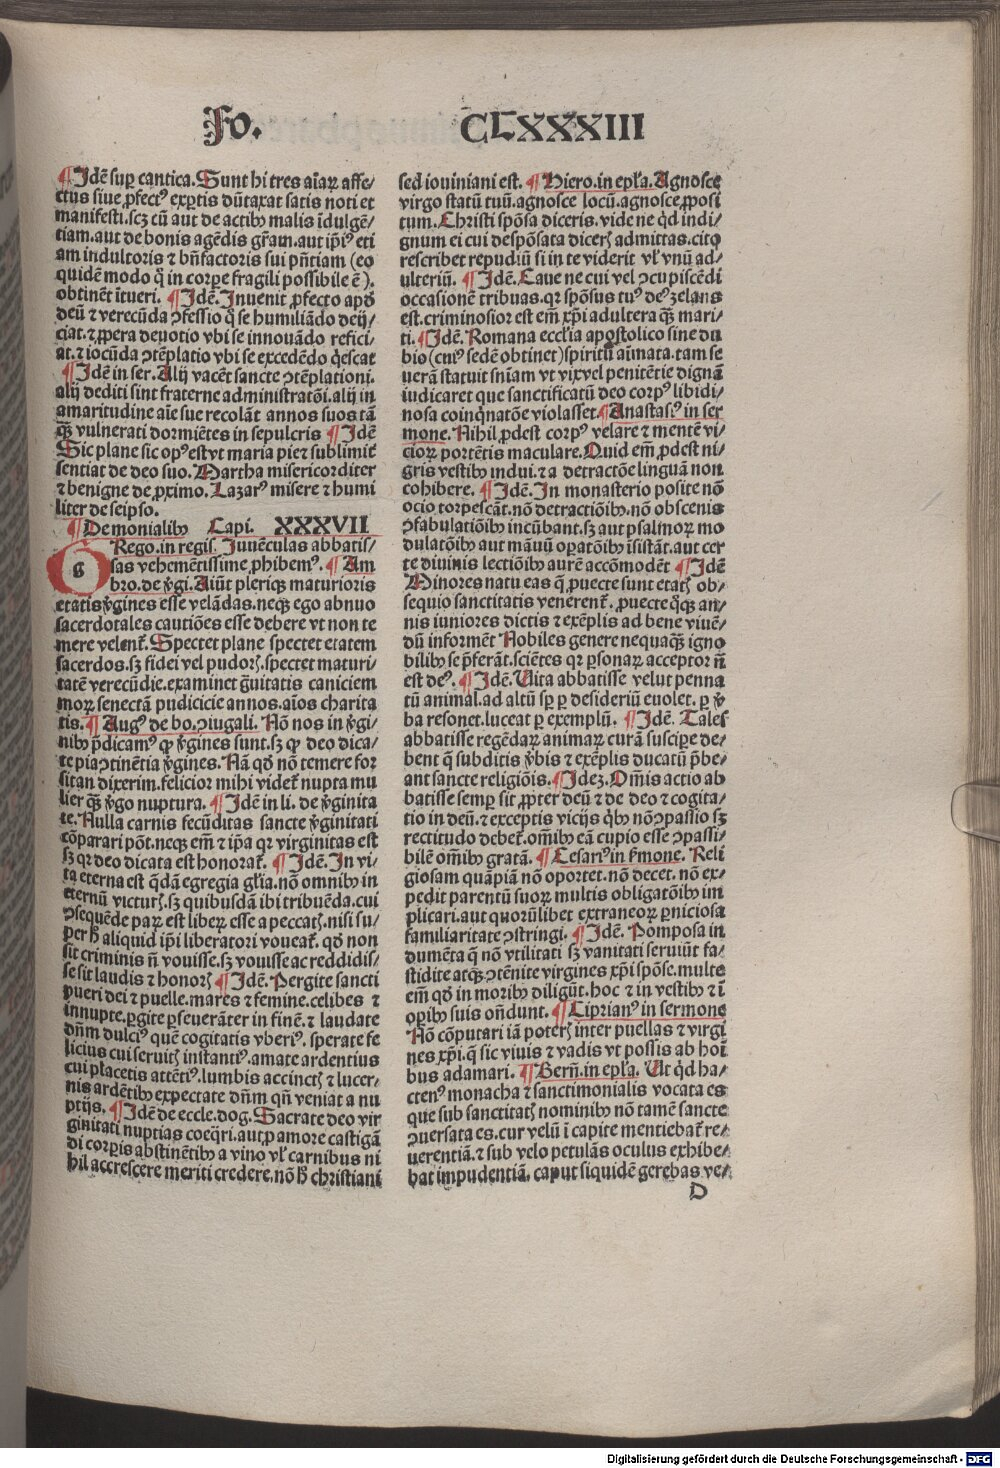 Fo. CLXXXIII
¶ Idē sup cantica. Sunt hi tres aīaꝝ affe/
ctus siue ꝓfectꝰ expꝑtis dūtaxat satis noti et
manifesti. scꝫ cū aut de actibꝰ malis īdulgē/
tiam. aut de bonis agēdis gr̄am. aut ip̄iꝰ eti
am indultoris ⁊ bn̄factoris sui pn̄tiam (eo
quidē modo q̄ in corpꝑe fragili possibile ē).
obtinēt ītueri. ¶ Idē. Inuenit ꝓfecto apd̄
deū ⁊ verecūda ꝯfessio q̄ se humiliādo deij/
ciat. ⁊ ꝓpera deuotio vbi se innouādo refici/
at. ⁊ iocūda ꝯtēplatio vbi se excedēdo q̄escat
¶ Idē in ser. Alij vacēt sancte ꝯtēplationi.
alij dediti sint fraterne administratōi. alij in
amaritudine aīe sue recolāt annos suos tā
qꝫ vulnerati dormiētes in sepulcris ¶ Idē
Sic plane sic opꝰ est vt maria pie ⁊ sublimit̄
sentiat de deo suo. Martha misericorditer
⁊ benigne de ꝓximo. Lazarꝰ misere ⁊ humi
liter de seipso.
¶ De monialibꝰ Capi. XXXVII
GRego. in regis. Iuuēculas abbatis/
sas vehemētissime ꝓhibemꝰ. ¶ Am
bro. de v̄gi. Aiūt pleriqꝫ maturioris
etatis v̄gines esse velādas. neqꝫ ego abnuo
sacerdotales cautiōes esse debere vt non te
mere velent̄. Spectet plane spectet etatem
sacerdos. sꝫ fidei vel pudoꝝ. spectet maturi/
tatē verecūdie. examinet ḡuitatis caniciem
moꝝ senectā pudicicie annos. aīos charita
tis. ¶ Augꝰ de bo. ꝯiugali. Nō nos in v̄gi/
nibꝰ p̄dicamꝰ qꝙ v̄gines sunt. sꝫ qꝙ deo dica/
te pia ꝯtinētia v̄gines. Nā qd̄ nō temere for
sitan dixerim. felicior mihi videt̄ nupta mu
lier qꝫ v̄go nuptura. ¶ Idē in li. de v̄ginita
te. Nulla carnis fecūditas sancte v̄ginitati
cōparari pōt. neqꝫ em̄ ⁊ ip̄a qꝛ virginitas est
sꝫ qꝛ deo dicata est honorat̄. ¶ Idē. In vi/
ta eterna est q̄dā egregia gl̄ia. nō omnibꝰ in
eternū victuꝝ. sꝫ quibusdā ibi tribuēda. cui
ꝯsequēde paꝝ est libeꝝ esse a peccatꝭ. nisi su/
per h̄ aliquid ip̄i liberatori voueat̄. qd̄ non
sit criminis n̄ vouisse. sꝫ vouisse ac reddidis/
se sit laudis ⁊ honoꝝ ¶ Idē. Pergite sancti
pueri dei ⁊ puelle. mares ⁊ femine. celibes ⁊
innupte. ꝑgite ꝑseuerāter in finē. ⁊ laudate
dn̄m dulciꝰ quē cogitatis vberiꝰ. sperate fe
licius cui seruitꝭ instantiꝰ. amate ardentius
cui placetis attētiꝰ. lumbis accinctꝭ ⁊ lucer/
nis ardētibꝰ expectate dn̄m qn̄ veniat a nu
ptijs. ¶ Idē de eccle. dog. Sacrate deo vir
ginitati nuptias coeq̄ri. aut ꝓ amore castigā
di corpꝑis abstinētibꝰ a vino vl̄ carnibus ni
hil accrescere meriti credere. nō h̄ christiani
sed iouiniani est. ¶ Hiero. in epl̄a. Agnosce
virgo statū tuū. agnosce locū. agnosce ꝓposi
tum. Christi spōsa diceris. vide ne qd̄ indi/
gnum ei cui despōsata diceꝝ admittas. cito
rescribet repudiū si in te viderit vl̄ vnū ad/
ulteriū. ¶ Idē. Caue ne cui vel ꝯcupiscēdi
occasionē tribuas. qꝛ spōsus tuꝰ deꝰ zelans
est. criminosior est em̄ xp̄i adultera qꝫ mari/
ti. ¶ Idē. Romana eccl̄ia apostolico sine du
bio (cuiꝰ sedē obtinet) spiritū aīmata. tam se
uerā statuit sn̄iam vt vix vel penitētie dignā
iudicaret que sanctificatū deo corpꝰ libidi/
nosa coinq̄natōe violasset. ¶ Anastasꝰ in ser
mone. Nihil ꝓdest corpꝰ velare ⁊ mentē vi/
cioꝝ portētis maculare. Quid em̄ ꝓdest ni/
gris vestibꝰ indui. ⁊ a detractōe linguā non
cohibere. ¶ Idē. In monasterio posite nō
ocio torpescāt. nō detractiōibꝰ. nō obscenis
ꝯfabulatiōibꝰ incūbant. sꝫ aut psalmoꝝ mo
dulatōibꝰ aut māuū oꝑatōibꝰ īsistāt. aut cer
te diuinis lectiōibꝰ aurē accōmodēt ¶ Idē
Minores natu eas q̄ ꝓuecte sunt etatꝭ ob/
sequio sanctitatis venerent̄. ꝓuecte q̄qꝫ an/
nis iuniores dictis ⁊ exēplis ad bene viuē/
dū informēt Nobiles genere nequaqꝫ igno
bilibꝰ se p̄ferāt. sciētes qꝛ ꝑsonaꝝ acceptor n̄
est deꝰ. ¶ Idē. Uita abbatisse velut penna
tū animal. ad altū sp̄ ꝑ desideriū euolet. ꝑ v̄
ba resonet. luceat ꝑ exemplū. ¶ Idē. Tales
abbatisse regēdaꝝ animaꝝ curā suscipe de/
bent q̄ subditis v̄bis ⁊ exēplis ducatū p̄be/
ant sancte religiōis. ¶ Ideꝫ. Om̄is actio ab
batisse semꝑ sit ꝓpter deū ⁊ de deo ⁊ cogita/
tio in deū. ⁊ exceptis vicijs q̄bꝰ nō ꝯpassio sꝫ
rectitudo debet̄. om̄ibꝰ eā cupio esse ꝯpassi/
bilē om̄ibꝰ gratā. ¶ Cesariꝰ in s̄mone. Reli
giosam quāpiā nō oportet. nō decet. nō ex/
pedit parentū suoꝝ multis obligatōibꝰ im
plicari. aut quorūlibet extraneoꝝ ꝑniciosa
familiaritate ꝯstringi. ¶ Idē. Pomposa in
dumēta q̄ nō vtilitati sꝫ vanitati seruiūt fa/
stidite atqꝫ ꝯtēnite virgines xp̄i spōse. multe
em̄ qd̄ in moribꝰ diligūt. hoc ⁊ in vestibꝰ ⁊ ī
opibꝰ suis on̄dunt. ¶ Ciprianꝰ in sermone
Nō cōputari iā poteꝝ inter puellas ⁊ virgi
nes xp̄i. q̄ sic viuis ⁊ vadis vt possis ab hoī
bus adamari. ¶ Bern̄. in epl̄a. Ut qd̄ ha/
ctenꝰ monacha ⁊ sanctimonialis vocata es
que sub sanctitatꝭ nominibꝰ nō tamē sancte
ꝯuersata es. cur velū ī capite mentiebat̄ re/
uerentiā. ⁊ sub velo petulās oculus exhibe/
bat impudentiā. caput siquidē gerebas ve/
D
Digitalisierung gefördert durch die Deutsche Forschungsgemeinschaft - DFG